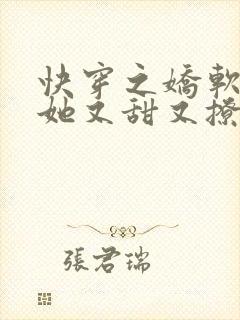 快穿之嬌軟
她又甜又撩
張君瑞